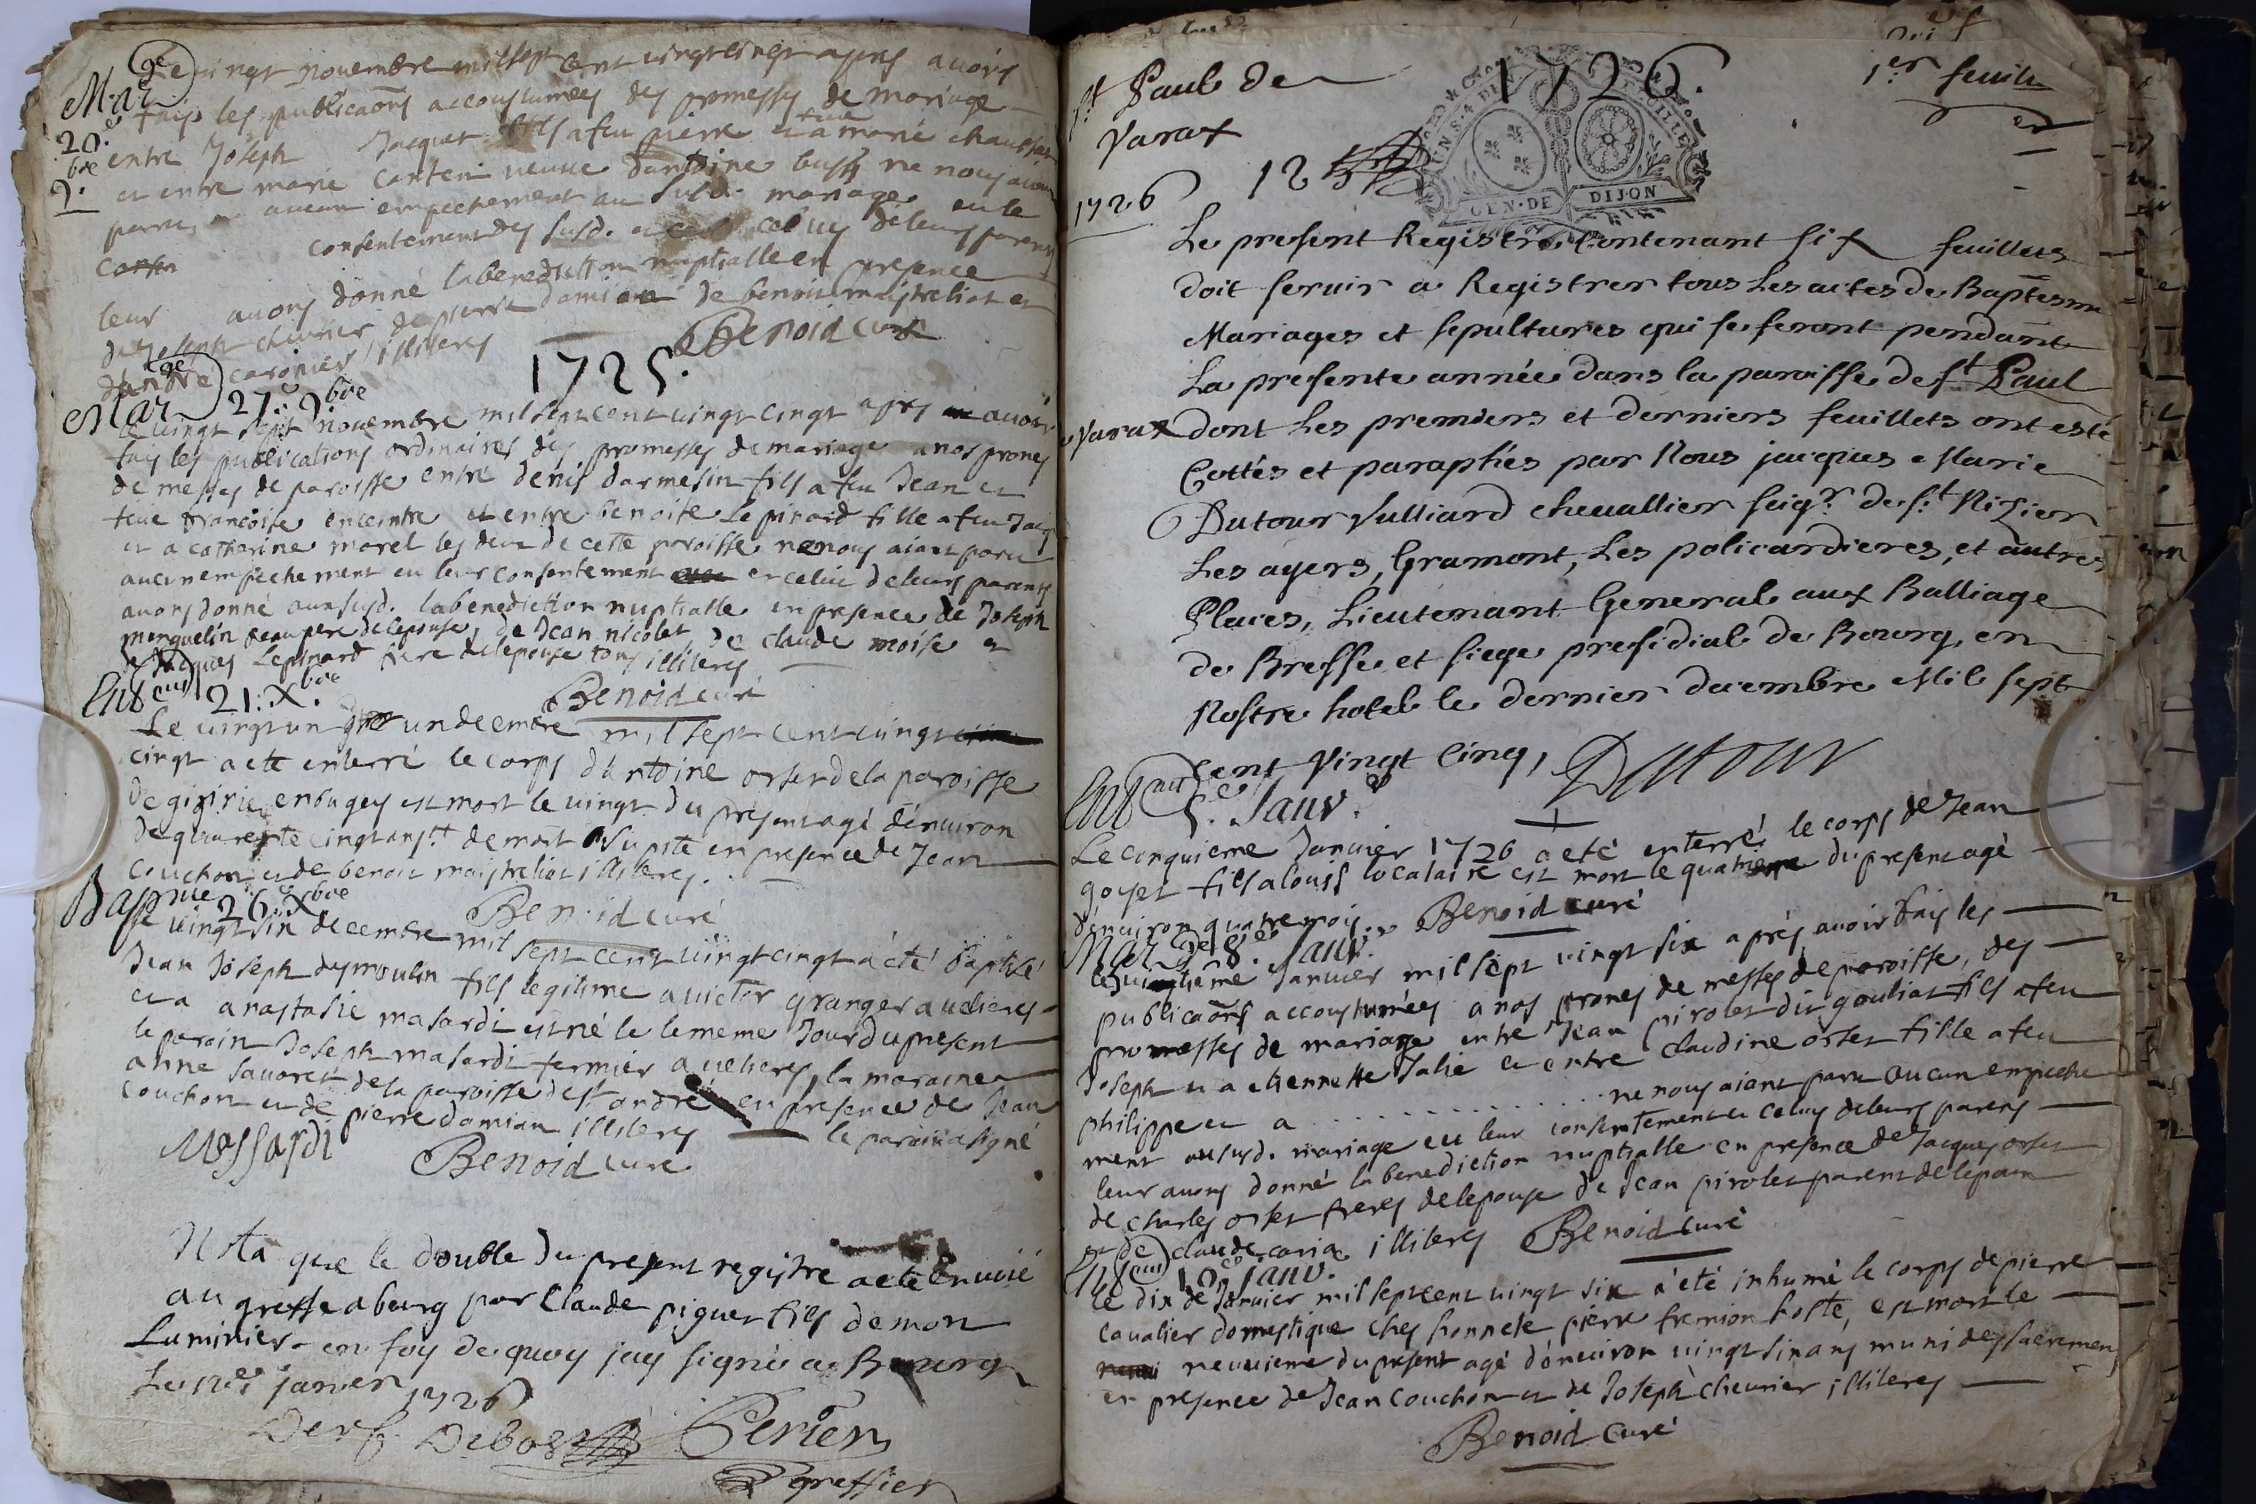 Mar.ge
20.e
9.bre
Le vingt novembre mil sept cent vingt cinqt apres avoir
fais les publicaõns accoustumées des promesses de mariage
entre Joseph Jacquet fils a feu pierre et a marie
et entre marie veuve d'antoine ne nous aiant
paru aucun empechement au susd. mariage eu le
consentement des susd. et celuy de leurs parens
leur avons donné la benediction nuptialle en presence
de Joseph chevrier de pierre damian de benoit maistreliat et
illiteres
Benoid curé
1725.
Mar.ge 27.e 9.bre
Le vingt sept novembre mil sept cent vingt cinqt apres avoir
fais les publications ordinaires des promesses de mariage a nos prones
de messes de paroisse entre denis darmesin fils a feu Jean et
feue francoise enceintre et entre benoite Lepinard fille a feu Jacq
et a catherine morel les deux de cette paroisse ne nous aiant paru
aucun empechement eu leur consentement et celui de leurs parents
avons donné aux susd. la benediction nuptialle en presence de Joseph
monquelin beaupere de lepouse, de Jean nicolet, de claude moise et
de Jacques Lepinard frere de lepouse tous illiteres
Benoid curé
21. X.bre
Le vingt un decembre mil sept cent vingt
cinqt a eté enterré le corps d'antoine orset de la paroisse
de en bugey est mort le vingt du present agé d'environ
de quarente cinqt ans de mort subite en presence de Jean
couchon et de benoit maistreliat illiteres.
Benoid curé
Bapme 26.e X.bre
Le vingt six decembre mil sept cent vingt cinqt a été baptisé
Jean Joseph desmoulin fils legitime a victor granger a velieres
et a anastasie masardi est né le le meme Jour du present
le parain Joseph masardi fermier a velieres, la maraine
anne savoret de la paroisse de st andré en presence de Jean
couchon et de pierre damian illiteres le parain a signé
Messardi
Benoid curé
Nota que le double du present registre a eté envoié
au greffe a bourg par Claude piguet fils de mon
Luminier en foy de quoy jay signé a Bourg
Le janvier 1726
Perier
greffier
St Paul de
Varax
1726.
1er feuillet
12
GEN·DE DIJON
1726
Le present Registre Contenant six feuillets
doit servir a Registrer tous Les actes de Baptesme
Mariages et sepultures qui se feront pendant
La presente année dans la paroisse de st Paul
de Varax dont Les premiers et derniers feuillets ont esté
Cottés et paraphés par Nous jacques Marie
Dutour Vulliard chevallier seigr. de st Nizier
Les ayers, Gramont, Les policardieres, et autres
Places, Lieutenant General aux Balliage
de Bresse et siege presidial de Bourg, en
Nostre hotel le dernier decembre Mil sept
cent Vingt Cinq,
Dutour
5.e Janv.
Le cinquieme Janvier 1726 a eté enterré le corps de Jean
goyet fils a louis locataire est mort le quatrieme du present agé
d'environ quatre mois. Benoid curé
Mar.ge 8.e Janv.
Le huitième Janvier mil sept vingt six après avoir fais les
publicaõns accoustumées a nos prones de messes de paroisse, des
promesses de mariage entre Jean pirolet dit gouliat fils a feu
Joseph et a etiennette Jalié et entre claudine orset fille a feu
philippe et a . . . . . . . . . . . ne nous aiant paru aucun empeche
ment au susd. mariage eu leur consentement et celuy de leurs parens
leur avons donné la benediction nuptialle en presence de Jacques orset
de charles orset freres de lepouse de Jean pirolet parent de lepoux
et de claude caria illiteres Benoid curé
10.e Janv.
Le dix de Janvier mil sept cent vingt six a été inhumé le corps de pierre
cavalier domestique ches honnete pierre fremion hoste, est mort le
neuvieme du present agé d'environ vingt six ans muni des sacremens
en presence de Jean couchon et de Joseph chevrier illiteres
Benoid Curé